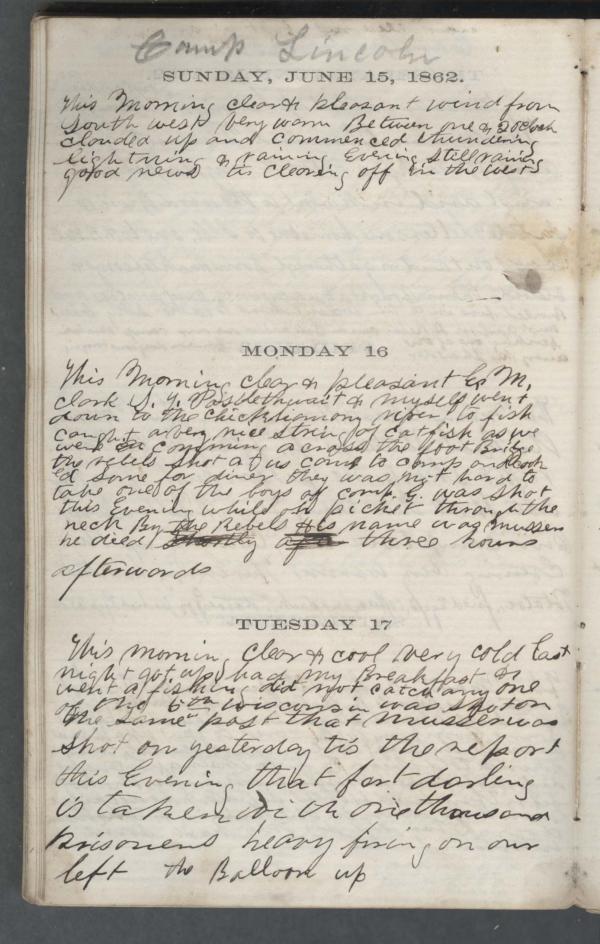 Camp Lincoln
SUNDAY, JUNE 15, 1862.
This Morning clear & pleasant wind from
South west very warm Between one & 2 oclock
clouded up and commenced thundering
lightning & raining Evening still raining
good news tis clearing off in the west
MONDAY 16
This Morning clear & pleasant G. M.
Clark S. Y. Postlethwait & myself went
down to the Chickahomony river to fish
caught a very nice string of catfish as we
were comming across the foot Bridge
the rebels shot at us come to camp and cook
ed some for diner they was not hard to
take one of the boys of comp. G. was shot
this Evening while on picket through the
neck By the Rebels His name was Musser
he died three hours
afterwords
TUESDAY 17
This morning clear & cool very cold last
night got up had my Breakfast &
went a fishing did not catch any one
of the 5th Wisconsin was shot on
the same post that Musser was
shot on yesterday tis the report
this Evening that fort darling
is taken with one thousand
prisoners heavy firing on our
left the Balloon up